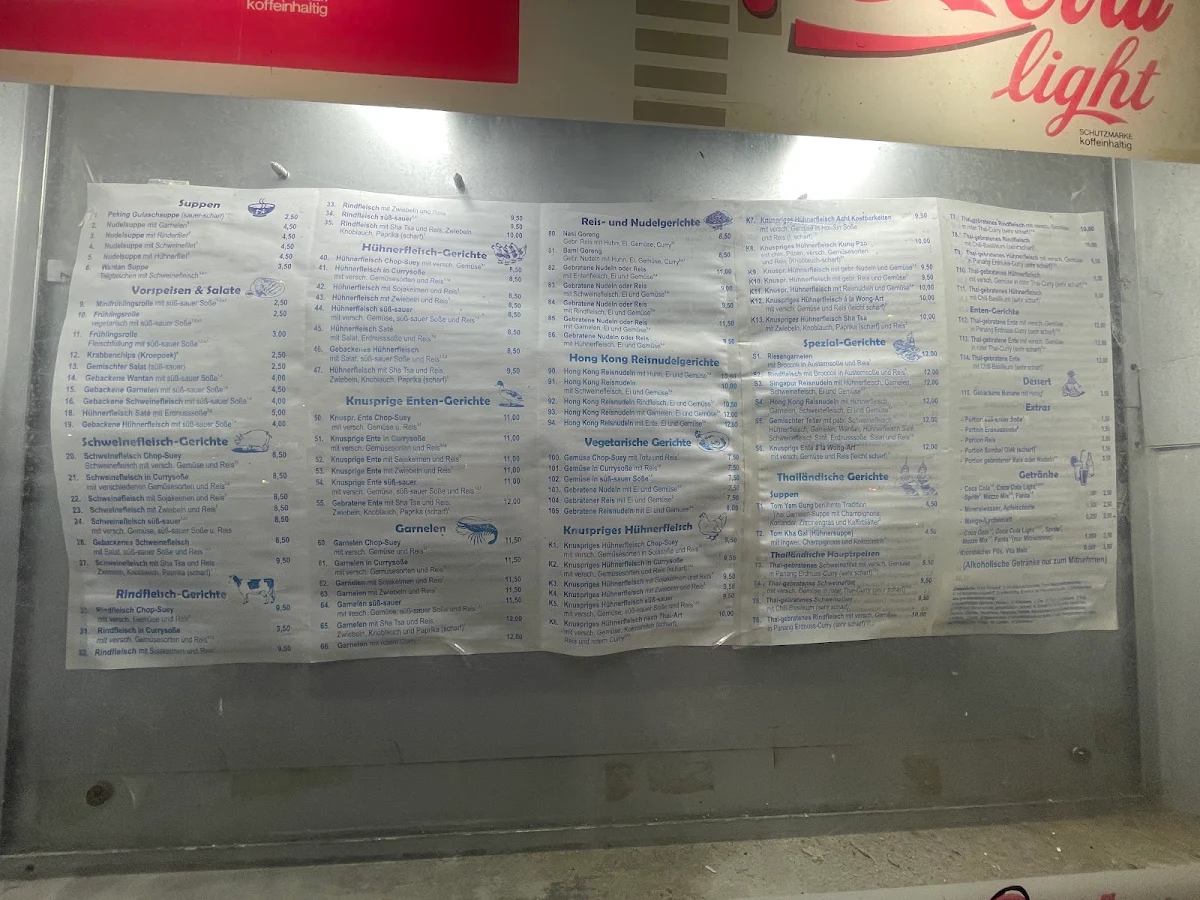 koffeinhaltig
light
SCHUTZMARKE
koffeinhaltig
Suppen
1. Peking Gulaschsuppe (sauer-scharf) 2,50
2. Nudelsuppe mit Garnelen 4,50
3. Nudelsuppe mit Rinderfilet 4,50
4. Nudelsuppe mit Schweinefilet 4,50
5. Nudelsuppe mit Hühnerfilet 4,50
6. Wantan Suppe 3,50
Teigtaschen mit Schweinefleisch
Vorspeisen & Salate
9. Minifrühlingsrolle mit süß-sauer Soße 2,50
10. Frühlingsrolle 2,50
vegetarisch mit süß-sauer Soße
11. Frühlingsrolle 3,00
Fleischfüllung mit süß-sauer Soße
12. Krabbenchips (Kroepoek) 2,50
13. Gemischter Salat (süß-sauer) 2,50
14. Gebackene Wantan mit süß-sauer Soße 4,00
15. Gebackene Garnelen mit süß-sauer Soße 4,50
16. Gebackene Schweinefleisch mit süß-sauer Soße 4,00
18. Hühnerfleisch Saté mit Erdnusssoße 5,00
19. Gebackene Hühnerfleisch mit süß-sauer Soße 4,00
Schweinefleisch-Gerichte
20. Schweinefleisch Chop-Suey 8,50
Schweinefleisch mit versch. Gemüse und Reis
21. Schweinefleisch in Currysoße 8,50
mit verschiedenen Gemüsesorten und Reis
22. Schweinefleisch mit Sojakeimen und Reis 8,50
23. Schweinefleisch mit Zwiebeln und Reis 8,50
24. Schweinefleisch süß-sauer 8,50
mit versch. Gemüse, süß-sauer Soße u. Reis
26. Gebackenes Schweinefleisch 8,50
mit Salat, süß-sauer Soße und Reis
27. Schweinefleisch mit Sha Tsa und Reis 9,50
Zwiebeln, Knoblauch, Paprika (scharf)
Rindfleisch-Gerichte
Rindfleisch Chop-Suey 9,50
mit versch. Gemüse und Reis
31. Rindfleisch in Currysoße
mit versch. Gemüsesorten und Reis
32. Rindfleisch mit Sojakeimen und Reis 9,50
33. Rindfleisch mit Zwiebeln und Reis
34. Rindfleisch süß-sauer 9,50
35. Rindfleisch mit Sha Tsa und Reis, Zwiebeln 10,00
Knoblauch, Paprika (scharf)
Hühnerfleisch-Gerichte
40. Hühnerfleisch Chop-Suey mit versch. Gemüse
41. Hühnerfleisch in Currysoße 8,50
mit versch. Gemüsesorten und Reis
42. Hühnerfleisch mit Sojakeimen und Reis 8,50
43. Hühnerfleisch mit Zwiebeln und Reis 8,50
44. Hühnerfleisch süß-sauer 8,50
mit versch. Gemüse, süß-sauer Soße und Reis
45. Hühnerfleisch Saté 8,50
mit Salat, Erdnusssoße und Reis
46. Gebackenes Hühnerfleisch 8,50
mit Salat, süß-sauer Soße und Reis
47. Hühnerfleisch mit Sha Tsa und Reis 9,50
Zwiebeln, Knoblauch, Paprika (scharf)
Knusprige Enten-Gerichte
50. Knuspr. Ente Chop-Suey 11,00
mit versch. Gemüse u. Reis
51. Knusprige Ente in Currysoße 11,00
mit versch. Gemüsesorten und Reis
52. Knusprige Ente mit Sojakeimen und Reis 11,00
53. Knusprige Ente mit Zwiebeln und Reis 11,00
54. Knusprige Ente süß-sauer 11,00
mit versch. Gemüse, süß-sauer Soße und Reis
55. Gebratene Ente mit Sha Tsa und Reis 12,00
Zwiebeln, Knoblauch, Paprika (scharf)
Garnelen
60. Garnelen Chop-Suey 11,50
mit versch. Gemüse und Reis
61. Garnelen in Currysoße 11,50
mit versch. Gemüsesorten und Reis
62. Garnelen mit Sojakeimen und Reis 11,50
63. Garnelen mit Zwiebeln und Reis 11,50
64. Garnelen süß-sauer 11,50
mit versch. Gemüse, süß-sauer Soße und Reis
65. Garnelen mit Sha Tsa und Reis 12,00
Zwiebeln, Knoblauch und Paprika (scharf)
66. Garnelen mit rotem Curry 12,00
Reis- und Nudelgerichte
80. Nasi Goreng 8,50
Gebr. Reis mit Huhn, Ei, Gemüse, Curry
81. Bami Goreng 8,50
Gebr. Nudeln mit Huhn, Ei, Gemüse, Curry
82. Gebratene Nudeln oder Reis 11,00
mit Entenfleisch, Ei und Gemüse
83. Gebratene Nudeln oder Reis
mit Schweinefleisch, Ei und Gemüse
84. Gebratene Nudeln oder Reis
mit Rindfleisch, Ei und Gemüse
85. Gebratene Nudeln oder Reis 11,50
mit Garnelen, Ei und Gemüse
86. Gebratene Nudeln oder Reis
mit Hühnerfleisch, Ei und Gemüse
Hong Kong Reisnudelgerichte
90. Hong Kong Reisnudeln mit Huhn, Ei und Gemüse
91. Hong Kong Reisnudeln 10,00
mit Schweinefleisch, Ei und Gemüse
92. Hong Kong Reisnudeln Rindfleisch, Ei und Gemüse
93. Hong Kong Reisnudeln mit Garnelen, Ei und Gemüse 12,00
94. Hong Kong Reisnudeln mit Ente, Ei und Gemüse
Vegetarische Gerichte
100. Gemüse Chop-Suey mit Tofu und Reis 7,50
101. Gemüse in Currysoße mit Reis 7,50
102. Gemüse in süß-sauer Soße 7,50
103. Gebratene Nudeln mit Ei und Gemüse 7,50
104. Gebratener Reis mit Ei und Gemüse 7,50
105. Gebratene Reisnudeln mit Ei und Gemüse 8,00
Knuspriges Hühnerfleisch
K1. Knuspriges Hühnerfleisch Chop-Suey 9,50
mit versch. Gemüsesorten in Sojasoße und Reis
K2. Knuspriges Hühnerfleisch in Currysoße 9,50
mit versch. Gemüsesorten und Reis
K3. Knuspriges Hühnerfleisch mit Sojakeimen und Reis 9,50
K4. Knuspriges Hühnerfleisch mit Zwiebeln und Reis 9,50
K5. Knuspriges Hühnerfleisch süß-sauer 9,50
mit versch. Gemüse, süß-sauer Soße und Reis
K6. Knuspriges Hühnerfleisch nach Thai-Art 10,00
mit versch. Gemüse, Kokosmilch
Reis und rotem Curry
K7. Knuspriges Hühnerfleisch Acht Kostbarkeiten 9,50
mit versch. Gemüse in Hoi-Sin Soße
und Reis (scharf)
K8. Knuspriges Hühnerfleisch Kung Pao 10,00
mit chin. Pilzen, versch. Gemüsesorten
und Reis (Knoblauch-scharf)
K9. Knuspr. Hühnerfleisch mit gebr. Nudeln und Gemüse 9,50
K10. Knuspr. Hühnerfleisch mit gebr. Reis und Gemüse 9,50
K11. Knuspr. Hühnerfleisch mit Reisnudeln und Gemüse 10,00
K12. Knuspriges Hühnerfleisch à la Wong-Art 10,00
mit versch. Gemüse und Reis (leicht scharf)
K13. Knuspriges Hühnerfleisch Sha Tsa 10,00
mit Zwiebeln, Knoblauch, Paprika (scharf) und Reis
Spezial-Gerichte
S1. Riesengarnelen 12,00
mit Broccoli in Austernsoße und Reis
S2. Rindfleisch mit Broccoli in Austernsoße und Reis 12,00
S3. Singapur Reisnudeln mit Hühnerfleisch, Garnelen 12,00
Schweinefleisch, Gemüse und Ei
S4. Hong Kong Reisnudeln mit Hühnerfleisch 12,00
Garnelen, Schweinefleisch, Gemüse und Ei
S5. Gemischter Teller mit gebr. Schweinefleisch 12,00
Hühnerfleisch, Garnelen, Wantan, Hühnerfleisch Saté
Schweinefleisch Saté, Erdnusssoße, Salat und Reis
S6. Knusprige Ente à la Wong-Art 12,00
mit versch. Gemüse und Reis (leicht scharf)
Thailändische Gerichte
Suppen
T1. Tom Yam Gung berühmte Tradition 4,50
Thai Garnelen-Suppe mit Champignons
Koriander, Zitronengras und Kaffirblätter
T2. Tom Kha Gai (Hühnersuppe) 4,50
mit Ingwer, Champignons und Kokosmilch
Thailändische Hauptspeisen
T3. Thai-gebratenes Schweinefleisch mit versch. Gemüse
in Panang Erdnuss-Curry (sehr scharf)
T4. Thai-gebratenes Schweinefleisch 9,50
in roter oder Thai-Curry (sehr scharf)
T5. Thai-gebratenes Schweinefleisch
mit Chili-Basilikum (sehr scharf)
T6. Thai-gebratenes Rindfleisch mit versch. Gemüse 10,00
in Panang Erdnuss-Curry (sehr scharf)
T7. Thai-gebratenes Rindfleisch mit versch. Gemüse 10,00
in roter Thai-Curry (sehr scharf)
T8. Thai-gebratenes Rindfleisch
mit Chili-Basilikum (sehr scharf)
T9. Thai-gebratenes Hühnerfleisch mit versch. Gemüse
in Panang Erdnuss-Curry (sehr scharf)
T10. Thai-gebratenes Hühnerfleisch
T11. Thai-gebratenes Hühnerfleisch
mit Chili-Basilikum (sehr scharf)
Enten-Gerichte
T12. Thai-gebratene Ente mit versch. Gemüse
in Panang Erdnuss-Curry (sehr scharf)
T13. Thai-gebratene Ente mit versch. Gemüse
T14. Thai-gebratene Ente
mit Chili-Basilikum (sehr scharf)
Dessert
Gebackene Banane mit Honig
Extras
Portion süß-sauer Soße
Portion Erdnusssoße
Portion Reis
Portion Sambal Olek (scharf)
Portion gebratener Reis oder Nudeln
Getränke
Coca Cola, Coca Cola Light
Sprite, Mezzo Mix, Fanta
Mineralwasser, Apfelschorle
(Alkoholische Getränke nur zum Mitnehmen)